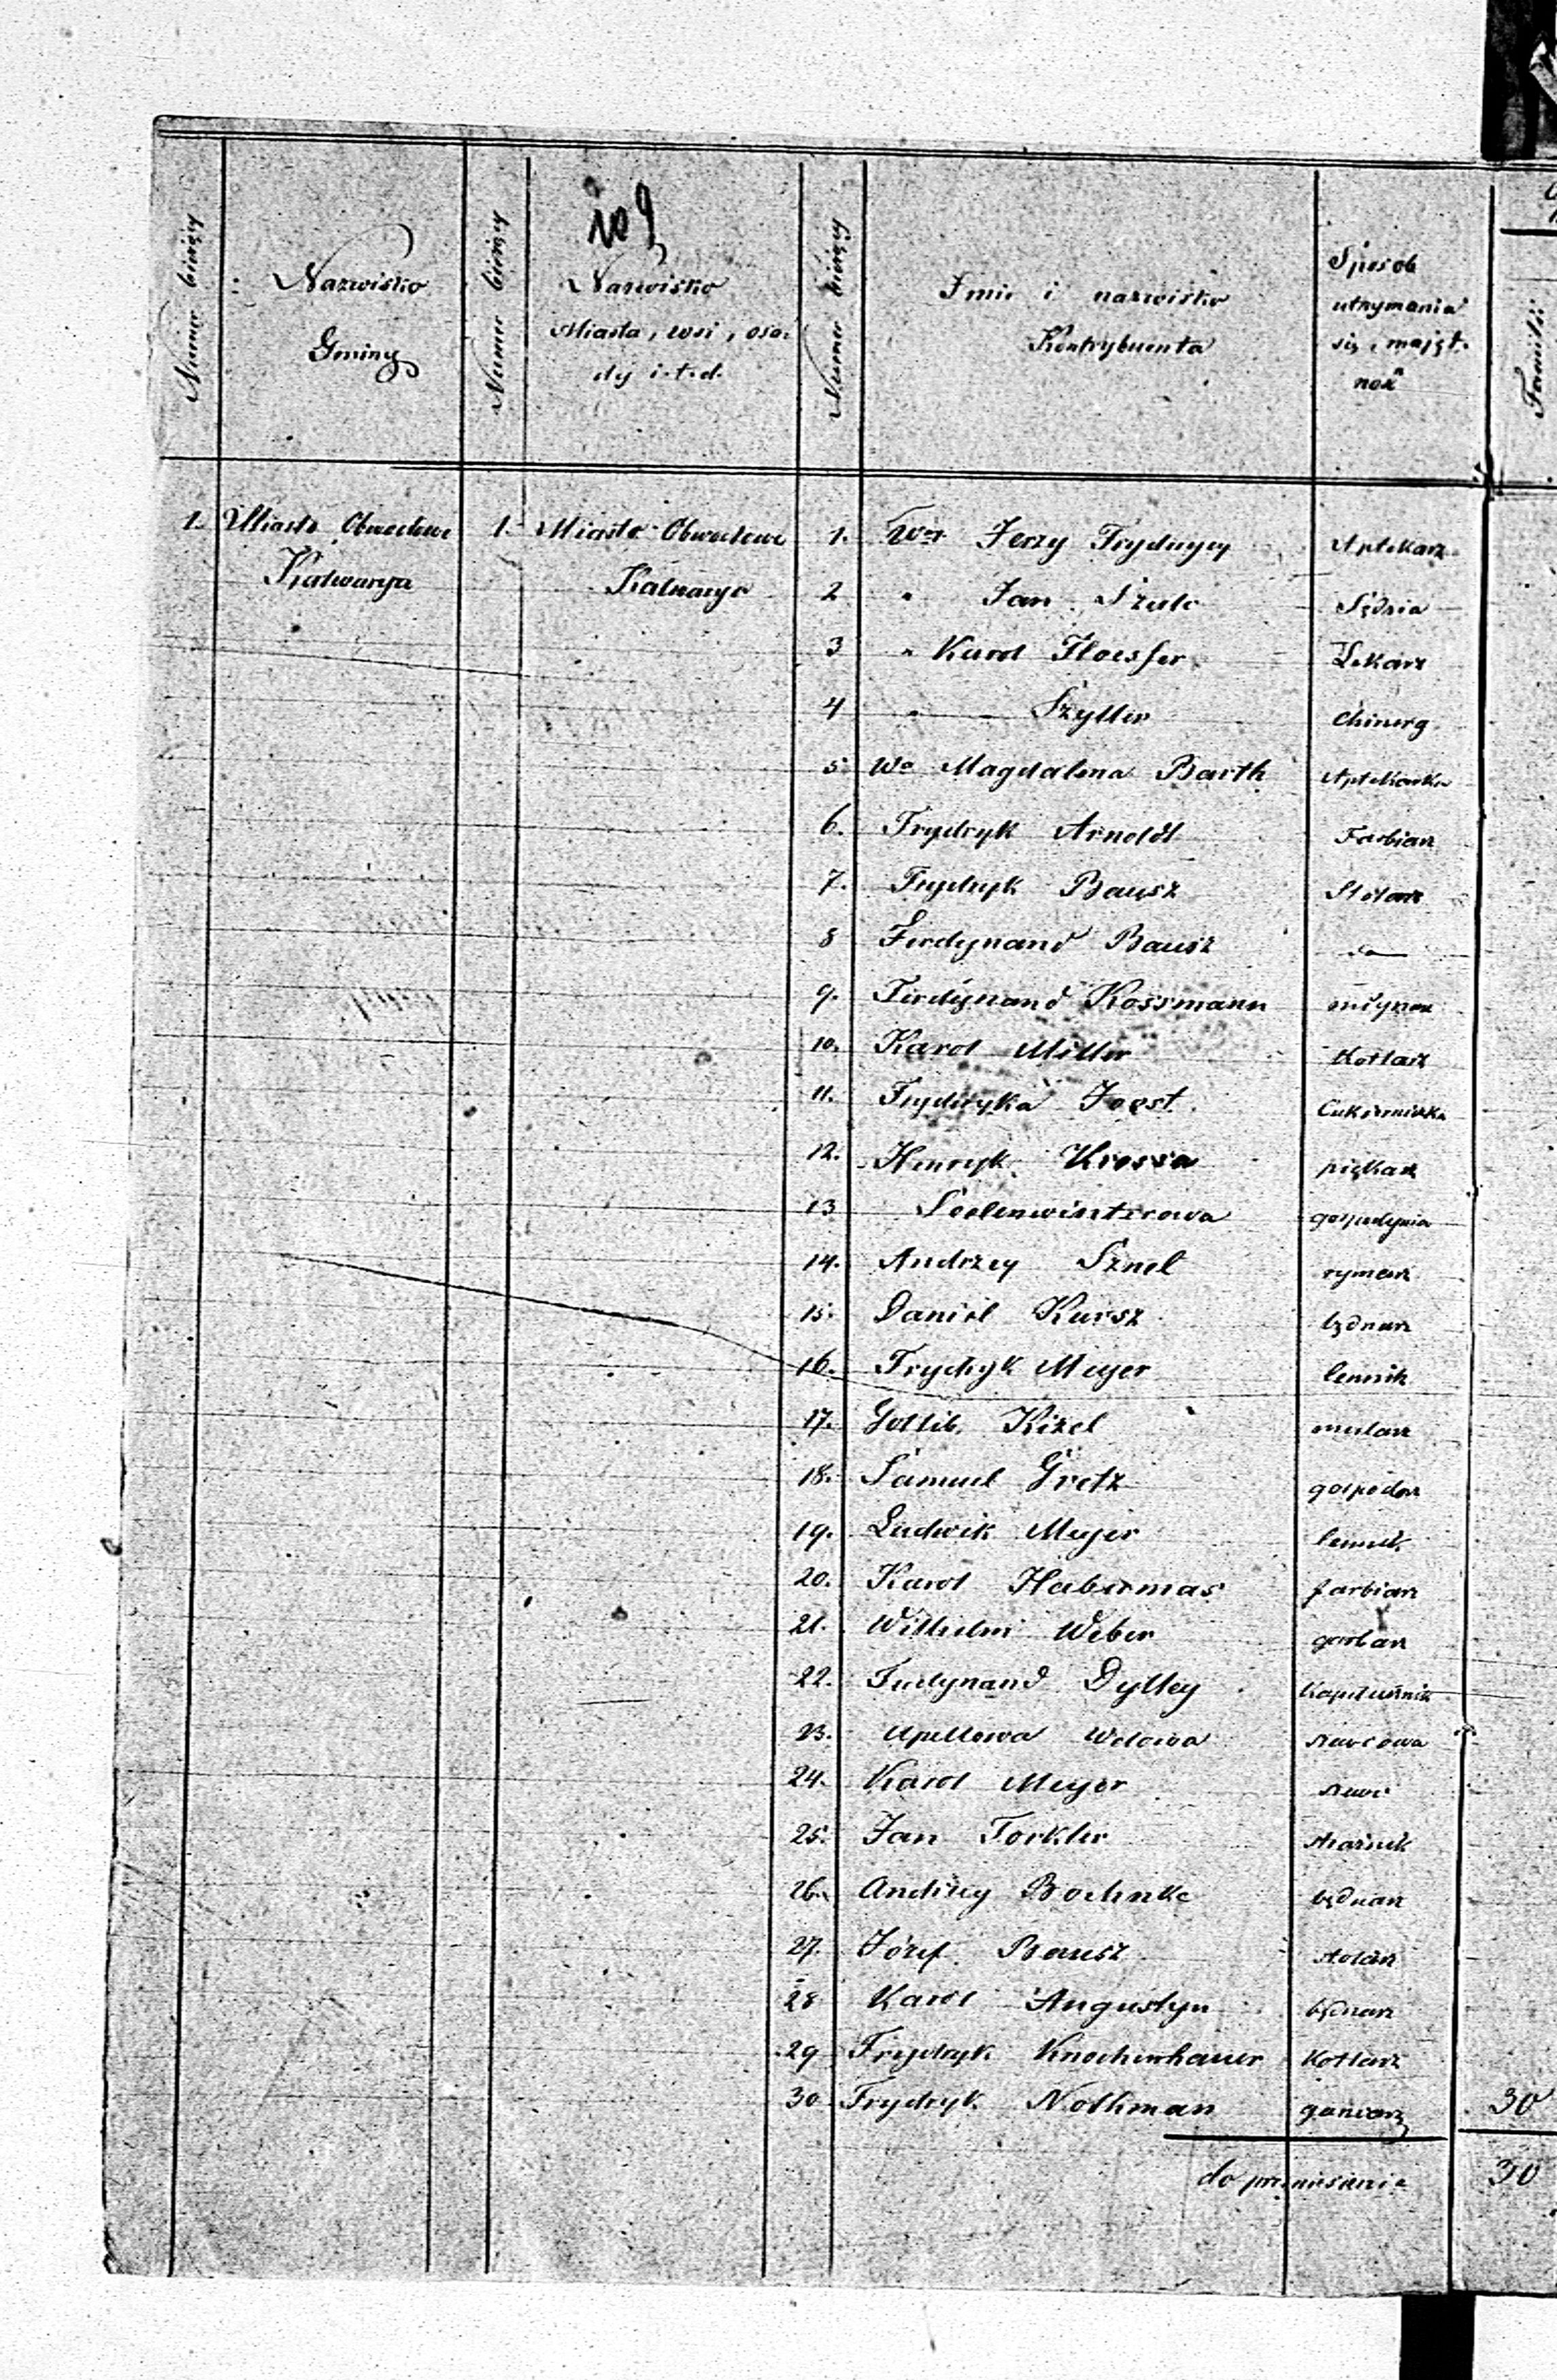 109
Numer bieżący
Nazwisko
Gminy
Numer bieżący
Nazwisko
Miasta, wsi, osa-
dy i.t.d.
Numer bieżący
Imie i nazwisko
Kontrybuenta
Sposób
utrzymania
się i mająt-
Familii
1. Miasto Obwodowe 1. Miasto Obwodowe 1. Jerzy Frydrycy Aptekarz
Kalwarya Kalwarya 2 " Jan Szulc Sędzia
3 " Karol Hoesfer Lekarz
4 " Szyller Chirurg
5 Wa Magdalena Barth Aptekarka
6. Frydryk Arnoldt Farbiarz
7. Frydryk Bausz Stolarz
8 Ferdynand Bausz do
9. Ferdynand Kossmann młynarz
10. Karol Miller Kotlarz
11. Frydryka Joest Cukierniczka
12. Henryk Krossa piękarz
13 Seelenwinterowa gospodynia
14. Andrzey Sznel rymarz
15. Daniel Kursz będnarz
16. Frydryk Meyer
17. Gottlib Kizel mularz
18. Samuel Gretz gospodarz
19. Ludwik Meyer
20. Karol Habermas farbiarz
21. Wilhelm Weber garbarz
22. Ferdynand Dylley Kapelusznik
23. Apellowa Wdowa szewcowa
24. Karol Meyer szewc
25. Jan Torkler strażnik
26. Andrzey Boehnke będnarz
27. Józef Bausz stolarz
28 Karol Augustyn będnarz
29 Frydryk Knochenhauer Kotlarz
30 Frydryk Nothman garncarz 30
do przeniesienia 30